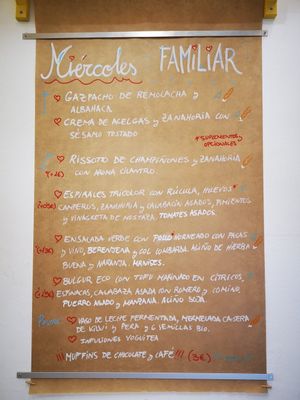 Miércoles FAMILIAR
GAZPACHO DE REMOLACHA y
ALBAHACA
CREMA DE ACELGAS y ZANAHORIA CON
SÉSAMO TOSTADO
*SUPLEMENTOS
OPCIONALES
RISSOTO DE CHAMPIÑONES y ZANAHORIA
CON AROMA CILANTRO.
ESPIRALES TRICOLOR CON RÚCULA, HUEVOS*
CAMPEROS, ZANAHORIA y CALABACÍN ASADOS, PIMIENTOS
y VINAGRETA DE MOSTAZA, TOMATES ASADOS.
ENSALADA VERDE CON POLLO HORNEADO CON PASAS
y VINO, BERENJENA y COL LOMBARDA. ALIÑO DE HIERBA
BUENA y NARANJA.
BULGUR ECO CON TOFU MARINADO EN CÍTRICOS,
ESPINACAS, CALABAZA ASADA CON ROMERO y COMINO,
PUERRO ASADO y MANZANA. ALIÑO SOJA
VASO DE LECHE FERMENTADA, MERMELADA CASERA
DE KIWI y PERA y 6 SEMILLAS BIO.
INFUSIONES YOGUITEA
!!! MUFFINS DE CHOCOLATE y CAFÉ!!! (3€)